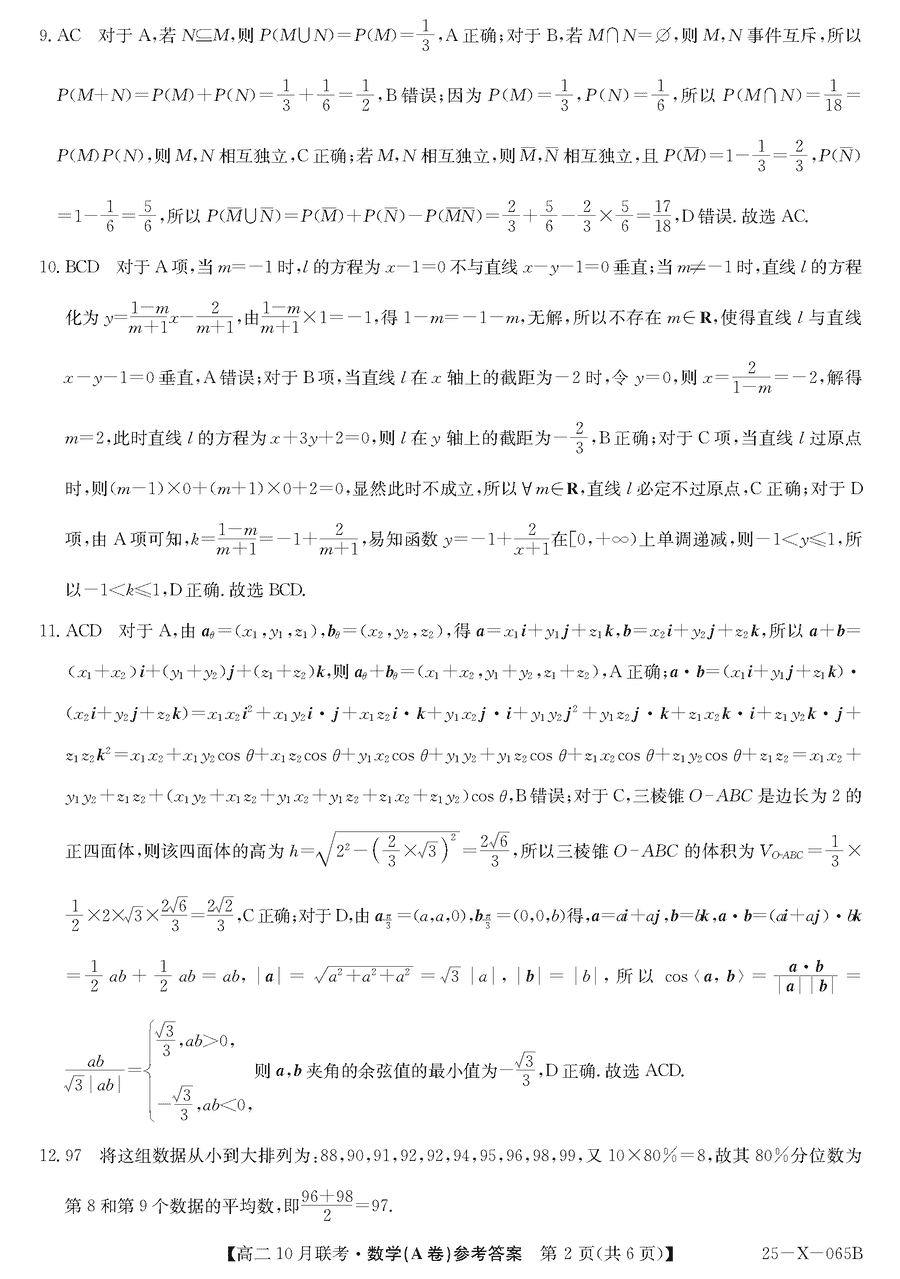 9. AC 对于 A,若 N⊆M,则 P(M∪N)=P(M)=1/3,A 正确;对于 B,若 M∩N=∅,则 M,N 事件互斥,所以
P(M+N)=P(M)+P(N)=1/3+1/6=1/2,B 错误;因为 P(M)=1/3,P(N)=1/6,所以 P(M∩N)=1/18=
P(M)P(N),则 M,N 相互独立,C 正确;若 M,N 相互独立,则 M̅,N̅ 相互独立,且 P(M̅)=1-1/3=2/3,P(N̅)
=1-1/6=5/6,所以 P(M̅∪N̅)=P(M̅)+P(N̅)-P(M̅N̅)=2/3+5/6-2/3×5/6=17/18,D 错误. 故选 AC.
10. BCD 对于 A 项,当 m=-1 时,l 的方程为 x-1=0 不与直线 x-y-1=0 垂直;当 m≠-1 时,直线 l 的方程
化为 y=(1-m)/(m+1)x-2/(m+1),由(1-m)/(m+1)×1=-1,得 1-m=-1-m,无解,所以不存在 m∈R,使得直线 l 与直线
x-y-1=0 垂直,A 错误;对于 B 项,当直线 l 在 x 轴上的截距为-2 时,令 y=0,则 x=2/(1-m)=-2,解得
m=2,此时直线 l 的方程为 x+3y+2=0,则 l 在 y 轴上的截距为-2/3,B 正确;对于 C 项,当直线 l 过原点
时,则(m-1)×0+(m+1)×0+2=0,显然此时不成立,所以∀m∈R,直线 l 必定不过原点,C 正确;对于 D
项,由 A 项可知,k=(1-m)/(m+1)=-1+2/(m+1),易知函数 y=-1+2/(x+1)在[0,+∞)上单调递减,则-1<y≤1,所
以-1<k≤1,D 正确. 故选 BCD.
11. ACD 对于 A,由 a_θ=(x₁,y₁,z₁),b_θ=(x₂,y₂,z₂),得 a=x₁i+y₁j+z₁k,b=x₂i+y₂j+z₂k,所以 a+b=
(x₁+x₂)i+(y₁+y₂)j+(z₁+z₂)k,则 a_θ+b_θ=(x₁+x₂,y₁+y₂,z₁+z₂),A 正确;a·b=(x₁i+y₁j+z₁k)·
(x₂i+y₂j+z₂k)=x₁x₂i²+x₁y₂i·j+x₁z₂i·k+y₁x₂j·i+y₁y₂j²+y₁z₂j·k+z₁x₂k·i+z₁y₂k·j+
z₁z₂k²=x₁x₂+x₁y₂cos θ+x₁z₂cos θ+y₁x₂cos θ+y₁y₂+y₁z₂cos θ+z₁x₂cos θ+z₁y₂cos θ+z₁z₂=x₁x₂+
y₁y₂+z₁z₂+(x₁y₂+x₁z₂+y₁x₂+y₁z₂+z₁x₂+z₁y₂)cos θ,B 错误;对于 C,三棱锥 O-ABC 是边长为 2 的
正四面体,则该四面体的高为 h=√(2²-(2/3×√3)²)=2√6/3,所以三棱锥 O-ABC 的体积为 V_{O-ABC}=1/3×
1/2×2×√3×2√6/3=2√2/3,C 正确;对于 D,由 a_{π/3}=(a,a,0),b_{π/3}=(0,0,b)得,a=ai+aj,b=bk,a·b=(ai+aj)·bk
=1/2 ab+1/2 ab=ab,|a|=√(a²+a²+a²)=√3|a|,|b|=|b|,所以 cos〈a,b〉=a·b/(|a||b|)=
ab/(√3|ab|)={√3/3,ab>0, -√3/3,ab<0, 则 a,b 夹角的余弦值的最小值为-√3/3,D 正确. 故选 ACD.
12. 97 将这组数据从小到大排列为:88,90,91,92,92,94,95,96,98,99,又 10×80%=8,故其 80%分位数为
第 8 和第 9 个数据的平均数,即(96+98)/2=97.
【高二 10 月联考·数学(A 卷)参考答案 第 2 页(共 6 页)】 25-X-065B